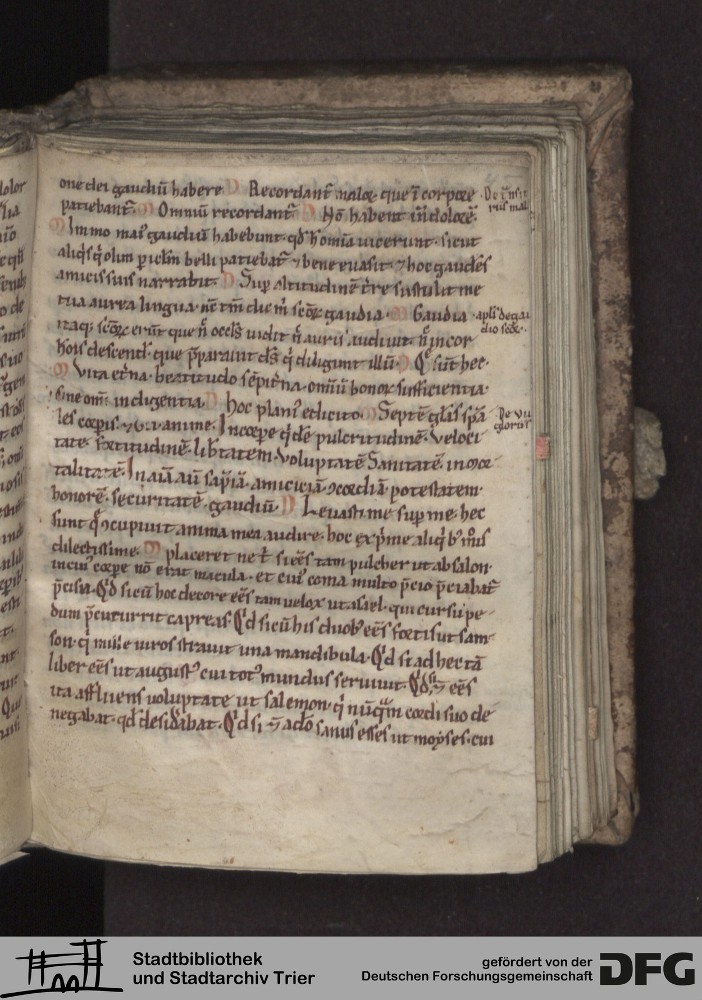 one dei gaudiũ habere D Recordant̃ maloꝝ que ĩ corpore
patiebant̃. M Omniũ recordant̃ D Nõ habent ĩñ dolorẽ.
M Immo mai᷒ gaudium habebunt. qd̃ hͦ omia uicerunt. sicut
aliq̃s qͥ olim piclm̃ belli patiebat̃ ⁊ bene euasit. ⁊ hoc gaudẽs
amicis suis narrabit. D Sup altitudinẽ t̃re sustulit me
tua aurea lingua. nẽ tm̃ die m̃ scõꝝ gaudia. M Gaudia
itaq; scõꝝ erũt que ñ occl᷒s uidit ñ auris audiuit. ñ in cor
hoĩs descend̃. que p̃parauit ds̃ qͥ diligunt illũ. D Q̃ sũt hec.
M Vita et̃na. beatitudo sẽpit̃na. omiũ bonoꝝ sufficientia.
sine omĩ indigentia. D hoc plani᷒ edicito. M Septẽ glã᷒s spã
les corpis ⁊ vii. anime. In corpe qͥdẽ pulcritudinẽ. Veloci
tatẽ. fortitudinẽ. libtatem. Voluptatẽ Sanitatẽ. inmor
talitatẽ. In aiã aũ sapĩã. amiciciã. ɔcordiã. potestatem.
honorẽ. securitatẽ. gaudiũ. D Leuasti me sup me. hec
sunt q̃ ɔcupiuit anima mea audire. hoc exp̃me aliq̃ bͥ mĩ᷒s
dilectissime. M placeret ne t̃. si eẽs tam pulcher ut absalon.
in cui᷒ corpe nõ erat macula. et cui᷒ coma multo p̃cio p̃ciabat̃
p̃cisa. Qͥd si cũ hoc decore eẽs tam uelox ut asael. qui cursu pe
dum p̃cucurrit capreas. Qͥd si cũ his duob᷒ eẽs fortis ut sam
son. qͥ mille uiros strauit una mandibula. Qͥd si ad hec tã
liber eẽs ut august᷒ cui tot᷒ mundus seruiuit. Qͥd si eẽs
ita affluens uoluptate ut salemon. qͥ nũqͣm cordi suo de
negabat. qd̃ desidãbat. Qͥd si adeo sanus esses ut moyses. cui
apl̃i de gau
dio scõꝝ.
Stadtbibliothek
und Stadtarchiv Trier
gefördert von der
Deutschen Forschungsgemeinschaft
DFG